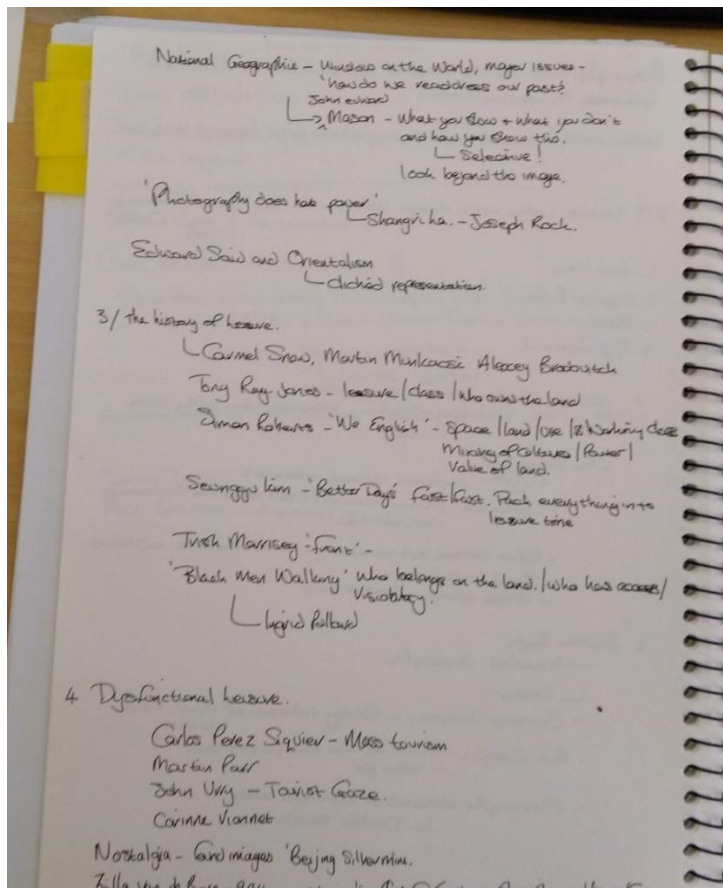 National Geographic - Window on the World, major issues -
'how do we readdress our past?
John edward
Mason - What you show + what you don't
and how you show this.
Selective!
look beyond the image.
'Photography does have power'
Shangri ha. - Joseph Rock.
Edward Said and Orientalism
clichéd representation.
3/ the history of leisure.
Carmel Snow, Martin Munkacsi Alexey Brodovitch
Tony Ray-Jones - leasure/class/who owns the land
Simon Roberts - 'We English' - Space/land/use/ Working class
Mixing of Cultures/Power/
Value of land.
Seunggu Kim - 'Better Days' fast/fast. Pack everything into
leisure time
Trish Morrisey - 'front' -
'Black Men Walking' who belongs on the land./who has access/
Visibility.
Ingrid Pollard
4 Dysfunctional leisure.
Carlos Perez Siquier - Mass tourism
Martin Parr
John Urry - Tourist Gaze.
Corinne Vionnet
Nostalgia - found images 'Beijing Silvermine.